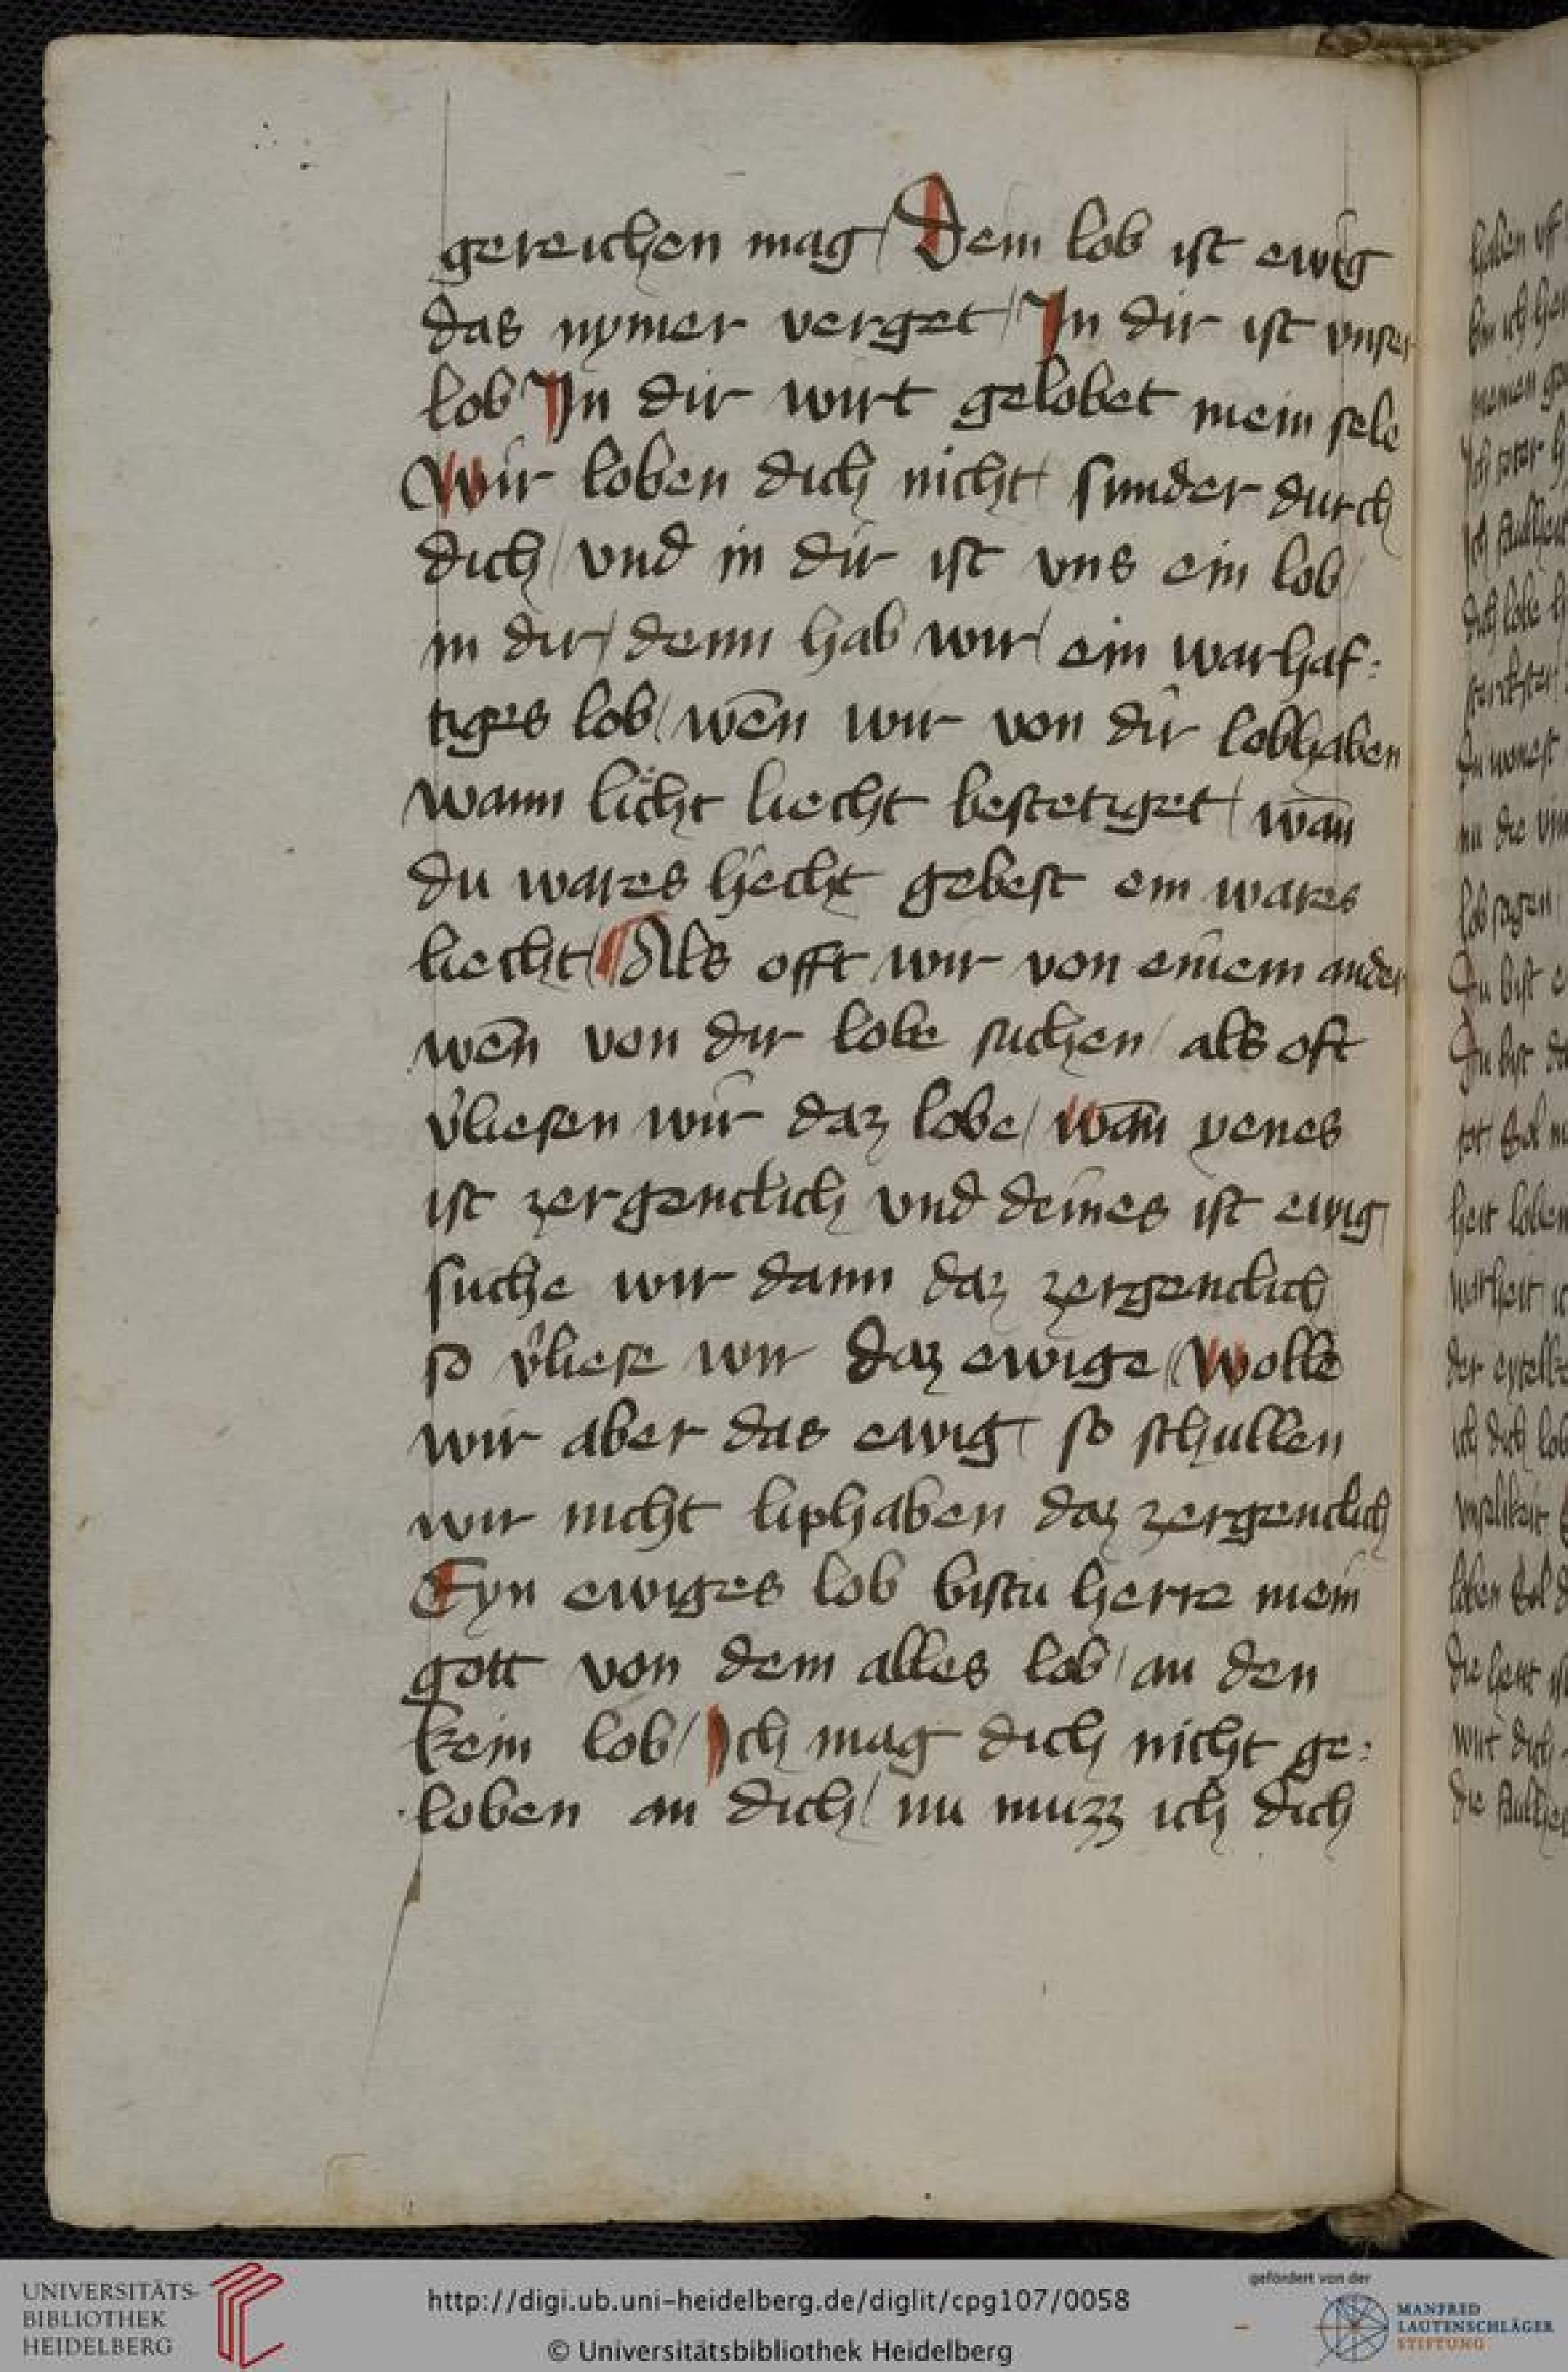 gereichen mag / Dein lob ist ewig
das nymer verget / In dir ist vnser
lob In dir wirt gelobet mein sele
Wir loben dich nicht / sunder durch
dich / vnd in dir ist vns ein lob /
in dir / denn hab wir / ein warhaf:
tiges lob / wen̄ wir von dir lobhaben
wann licht liecht bestetiget / wan̄
du wares liecht gebest ein wares
liecht / Als offt wir von einem ander
wen̄ von dir lobe suchen / als oft
v̓liesen wir daz lobe / wan̄ yenes
ist zergenclich vnd deines ist ewig
suche wir dann daz zergenclich
so v̓liese wir daz ewige / Wolle
wir aber das ewig / so schullen
wir nicht liphaben daz zergenclich
Eyn ewiges lob bistu herre mein
gott von dem alles lob / an den
kein lob / Ich mag dich nicht ge:
loben an dich / nu muzz ich dich
haben
bin ich
meinen
Ich
Ich
dich lobe
du wonest
nu die
lob sagen
Du bist
Du bist
heit loben
warheit
der
ich dich lob
loben
die
wirt dich
die
UNIVERSITÄTS-
BIBLIOTHEK
HEIDELBERG
http://digi.ub.uni-heidelberg.de/diglit/cpg107/0058
© Universitätsbibliothek Heidelberg
gefördert von der
MANFRED
LAUTENSCHLÄGER
STIFTUNG